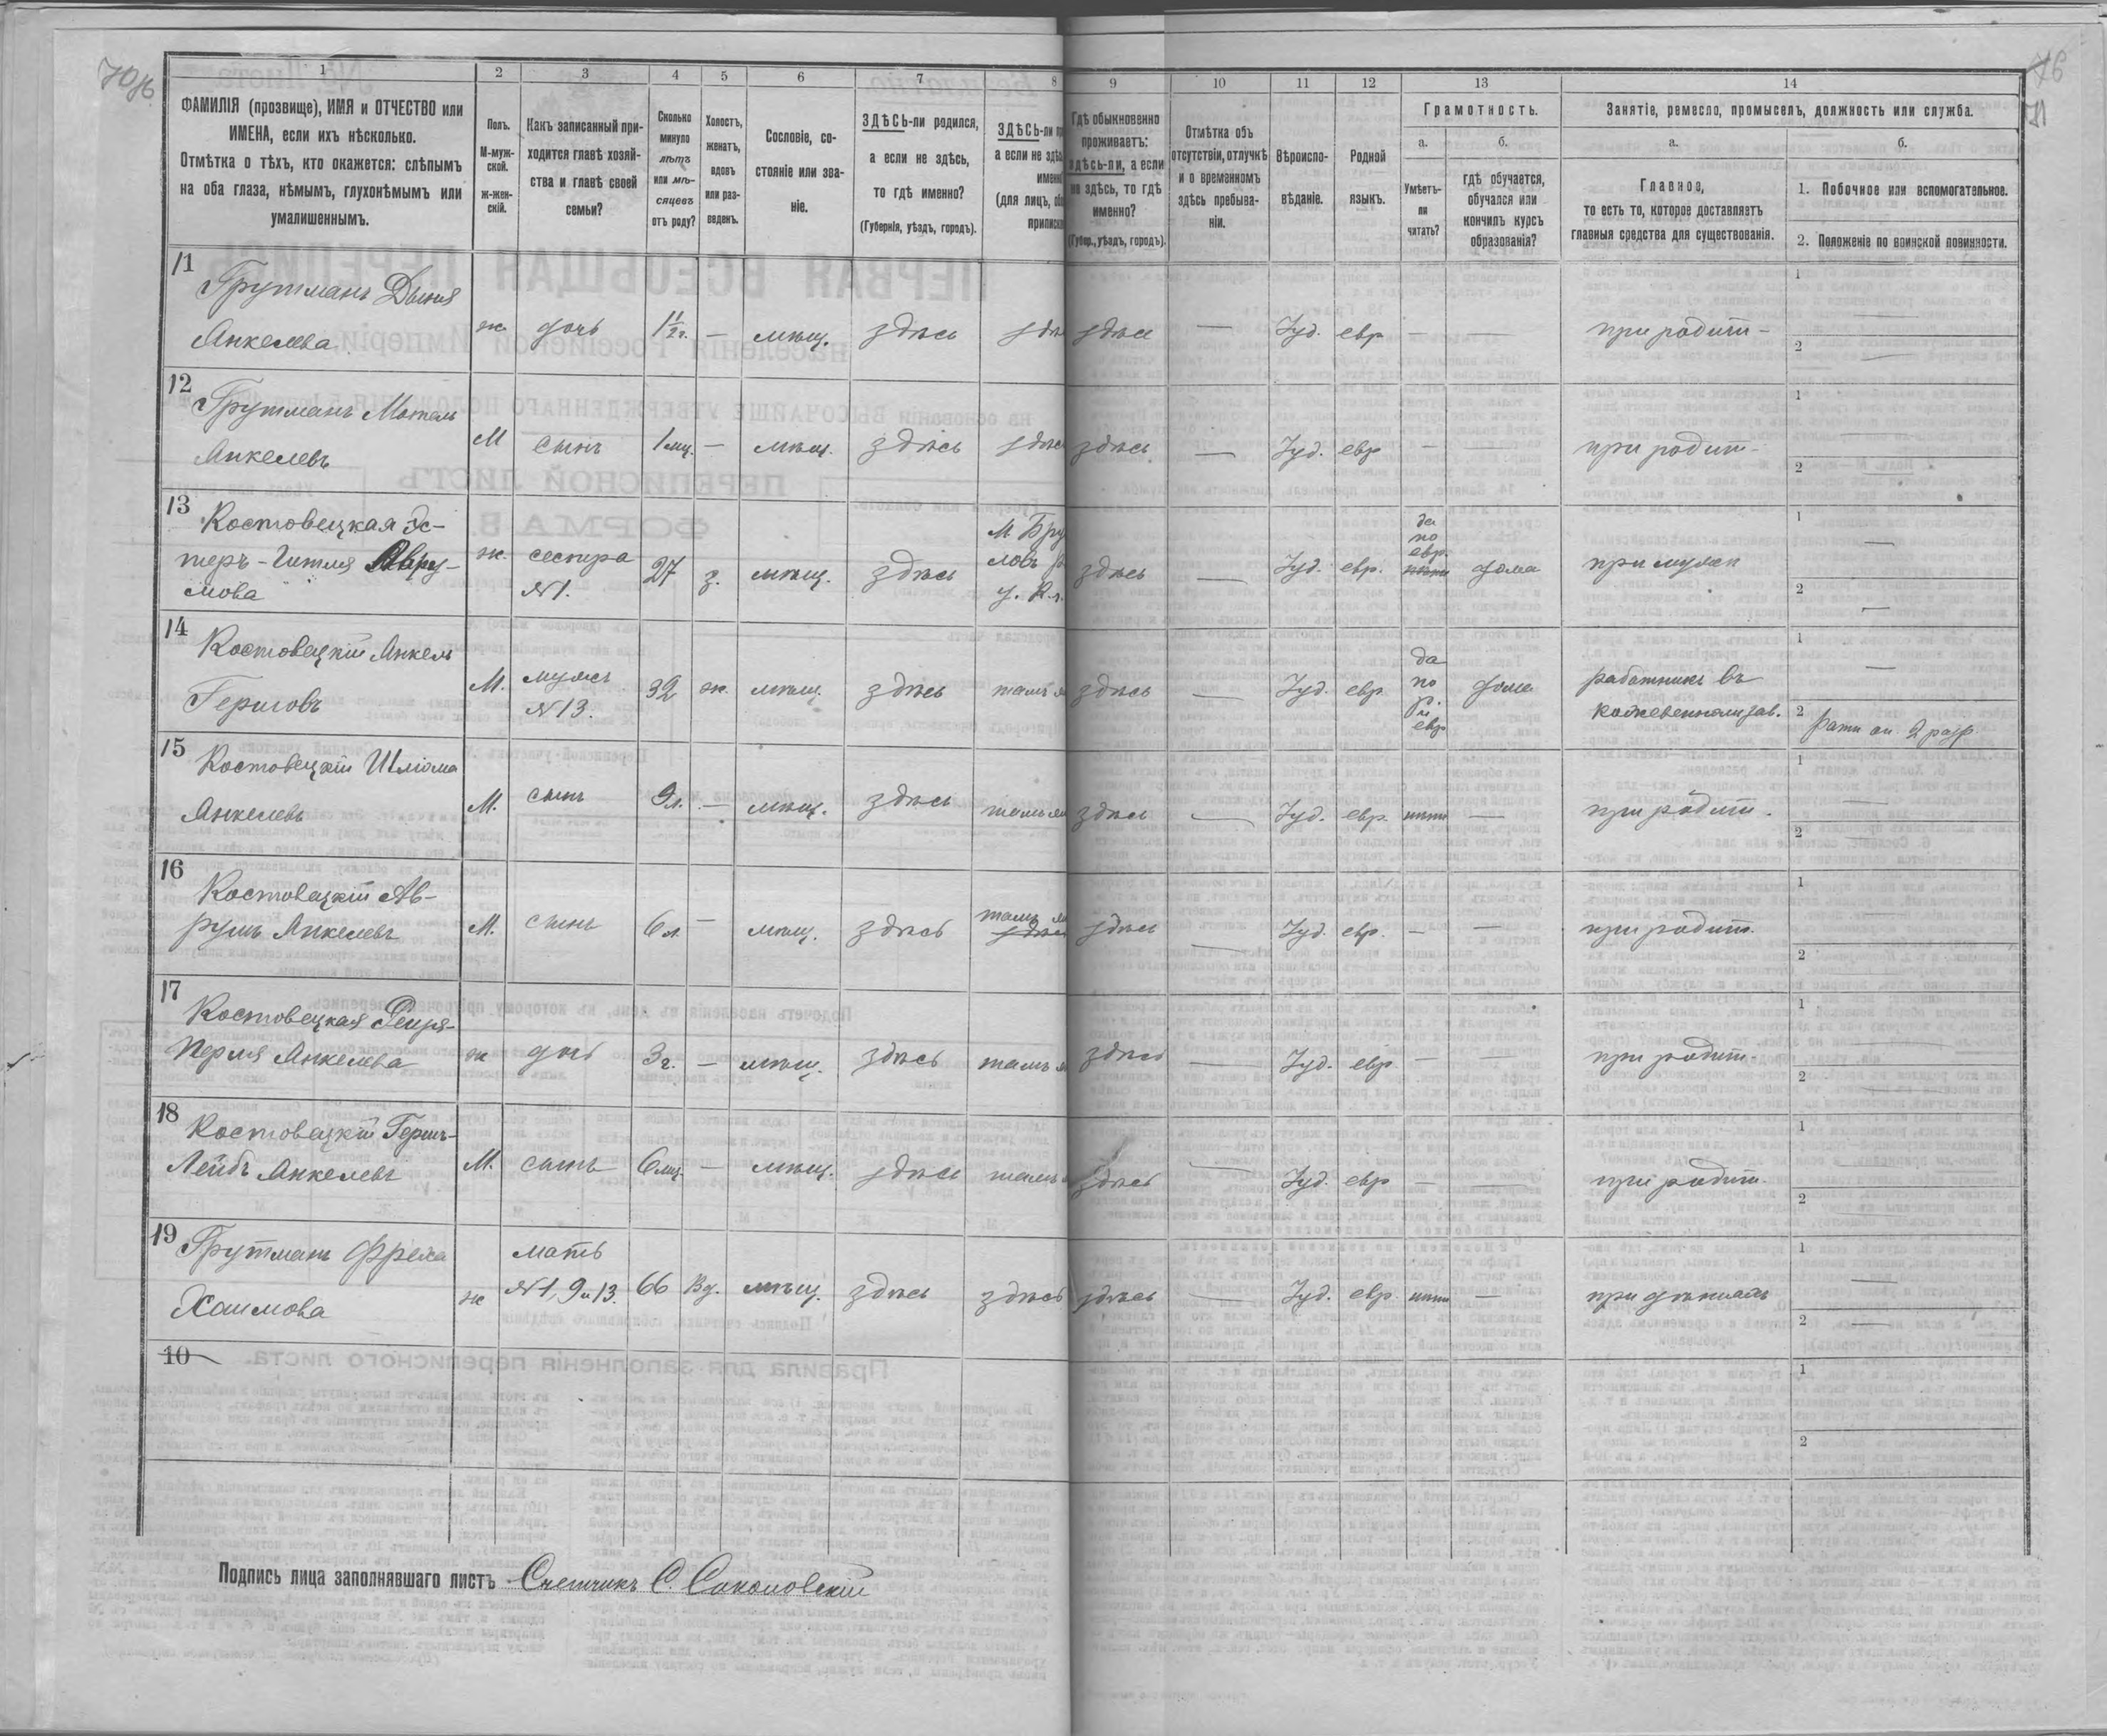 70об.
1 2 3 4 5 6 7 8 9 10 11 12 13 14
ФАМИЛІЯ (прозвище), ИМЯ и ОТЧЕСТВО или
ИМЕНА, если ихъ нѣсколько.
Отмѣтка о тѣхъ, кто окажется: слѣпымъ
на оба глаза, нѣмымъ, глухонѣмымъ или
умалишеннымъ.
Полъ.
М-муж-
ской.
ж-жен-
скій.
Какъ записанный при-
ходится главѣ хозяй-
ства и главѣ своей
семьи?
Сколько
минуло
лѣтъ
или мѣ-
сяцевъ
отъ роду?
Холостъ,
женатъ,
вдовъ
или раз-
веденъ.
Сословіе, со-
стояніе или зва-
ніе.
ЗДѢСЬ-ли родился,
а если не здѣсь,
то гдѣ именно?
(Губернія, уѣздъ, городъ).
ЗДѢСЬ-ли пр
а если не здѣ
именн
(для лицъ, об
приписк
Гдѣ обыкновенно
проживаетъ:
здѣсь-ли, а если
не здѣсь, то гдѣ
именно?
(Губер., уѣздъ, городъ).
Отмѣтка объ
отсутствіи, отлучкѣ
и о временномъ
здѣсь пребыва-
ніи.
Вѣроиспо-
вѣданіе.
Родной
языкъ.
Грамотность.
а.
Умѣетъ-
ли
читать?
б.
гдѣ обучается,
обучался или
кончилъ курсъ
образованія?
Занятіе, ремесло, промыселъ, должность или служба.
а.
Главное,
то есть то, которое доставляетъ
главныя средства для существованія.
б.
1. Побочное или вспомогательное.
2. Положеніе по воинской повинности.
11 Грутманъ Двыня
Анкелева ж. дочь 1 1/2 г. — мѣщ. здѣсь здѣ здѣсь — Іуд. евр — — при родит- 1 — 2 —
12 Грутманъ Мотель
Анкелевъ М сынъ 1 мц. — мѣщ. здѣсь здѣс здѣсь — Іуд. евр — — при родит- 1 — 2 —
13 Костовецкая Эс-
теръ-Гитля Авру-
мова ж. сестра
№1. 27 з. мѣщ. здѣсь М. Бру
ловъ
у. К.г. здѣсь — Іуд. евр. да
по
евр. дома при мужѣ 1 2 —
14 Костовецкій Анкель
Гершовъ М. мужъ
№13. 32 ж. мѣщ. здѣсь тамъ здѣсь — Іуд. евр. да
по
р.
и
евр дома работникъ въ
кожевенномъ зав. 1 — 2 ратн оп. 2 разр
15 Костовецкій Шлiома
Анкелевъ М. сынъ 9 л. — мѣщ. здѣсь тамъ здѣсь — Іуд. евр. нѣтъ — при родит. 1 — 2 —
16 Костовецкій Ав-
румъ Анкелевъ М. сынъ 6 л — мѣщ. здѣсь тамъ здѣсь — Іуд. евр. — — при родит. 1 — 2 —
17 Костовецкая
Перля Анкелева ж дочь 3 г. — мѣщ. здѣсь тамъ здѣсь — Іуд. евр — — при родит- 1 — 2 —
18 Костовецкій Гершъ-
Лейбъ Анкелевъ М. сынъ 6 мц — мѣщ. здѣсь тамъ здѣсь — Іуд. евр — — при родит. 1 — 2 —
19 Грутманъ Фрейа
Хаимова ж мать
№1, 9 и 13. 66 Вд. мѣщ. здѣсь здѣсь здѣсь — Іуд. евр. нѣтъ — при дѣтяхъ 1 — 2 —
10 1 2
Подпись лица заполнявшаго листъ Счетчикъ С. Соколовскій